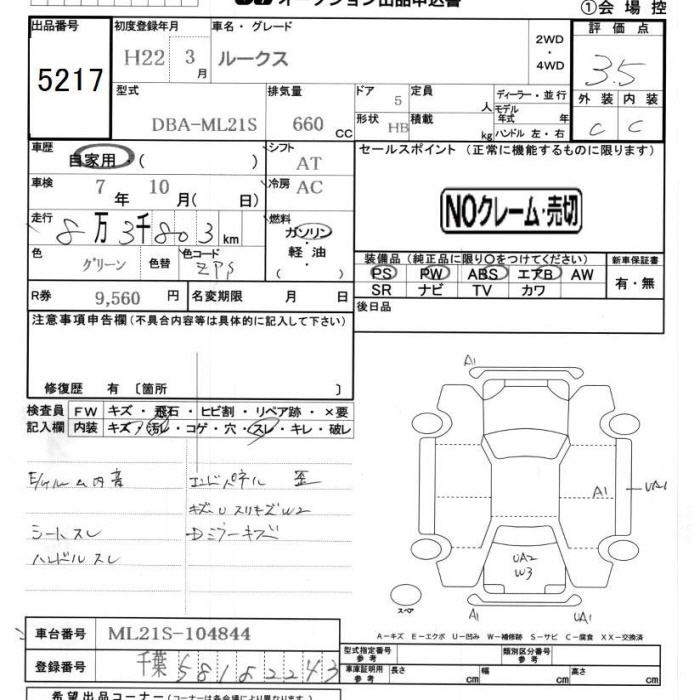 オークション出品申込書
①会場控
出品番号 初度登録年月 車名・グレード 評価点
5217 H22 3月 ルークス 2WD・4WD 3.5
型式 排気量 ドア 定員 ディーラー・並行 外装 内装
DBA-ML21S 660 CC 5 人 モデル年式 年 C C
形状 HB 積載 kg ハンドル 左・右
車歴 自家用・( ) シフト AT セールスポイント(正常に機能するものに限ります)
車検 7年 10月( 日) 冷房 AC
NOクレーム・売切
走行 8万3千803km 燃料 ガソリン・軽油・( )
色 グリーン 色替 色コード ZPS
装備品(純正品に限り○をつけてください) 新車保証書
PS PW ABS エアB AW 有・無
SR ナビ TV カワ
R券 9,560円 名変期限 月 日 後日品
注意事項申告欄(不具合内容等は具体的に記入して下さい)
修復歴 有 〔箇所 〕
検査員 FW キズ・飛石・ヒビ割・リペア跡・×要
記入欄 内装 キズ・汚レ・コゲ・穴・スレ・キレ・破レ
E/gルーム内音 エンドパネル 歪
キズU スリキズW2
シートスレ Dミラーキズ
ハンドルスレ
A1
A1 UA1
UA2
W3
スペア A1 UA1
A-キズ E-エクボ U-凹み W-補修跡 S-サビ C-腐食 XX-交換済
車台番号 ML21S-104844
型式指定番号 参考 類別区分番号 参考
登録番号 千葉 581 8 2243
車庫証明用 参考 長さ cm 幅 cm 高さ cm
希望出品コーナー(コーナーは各会場により異なります。)